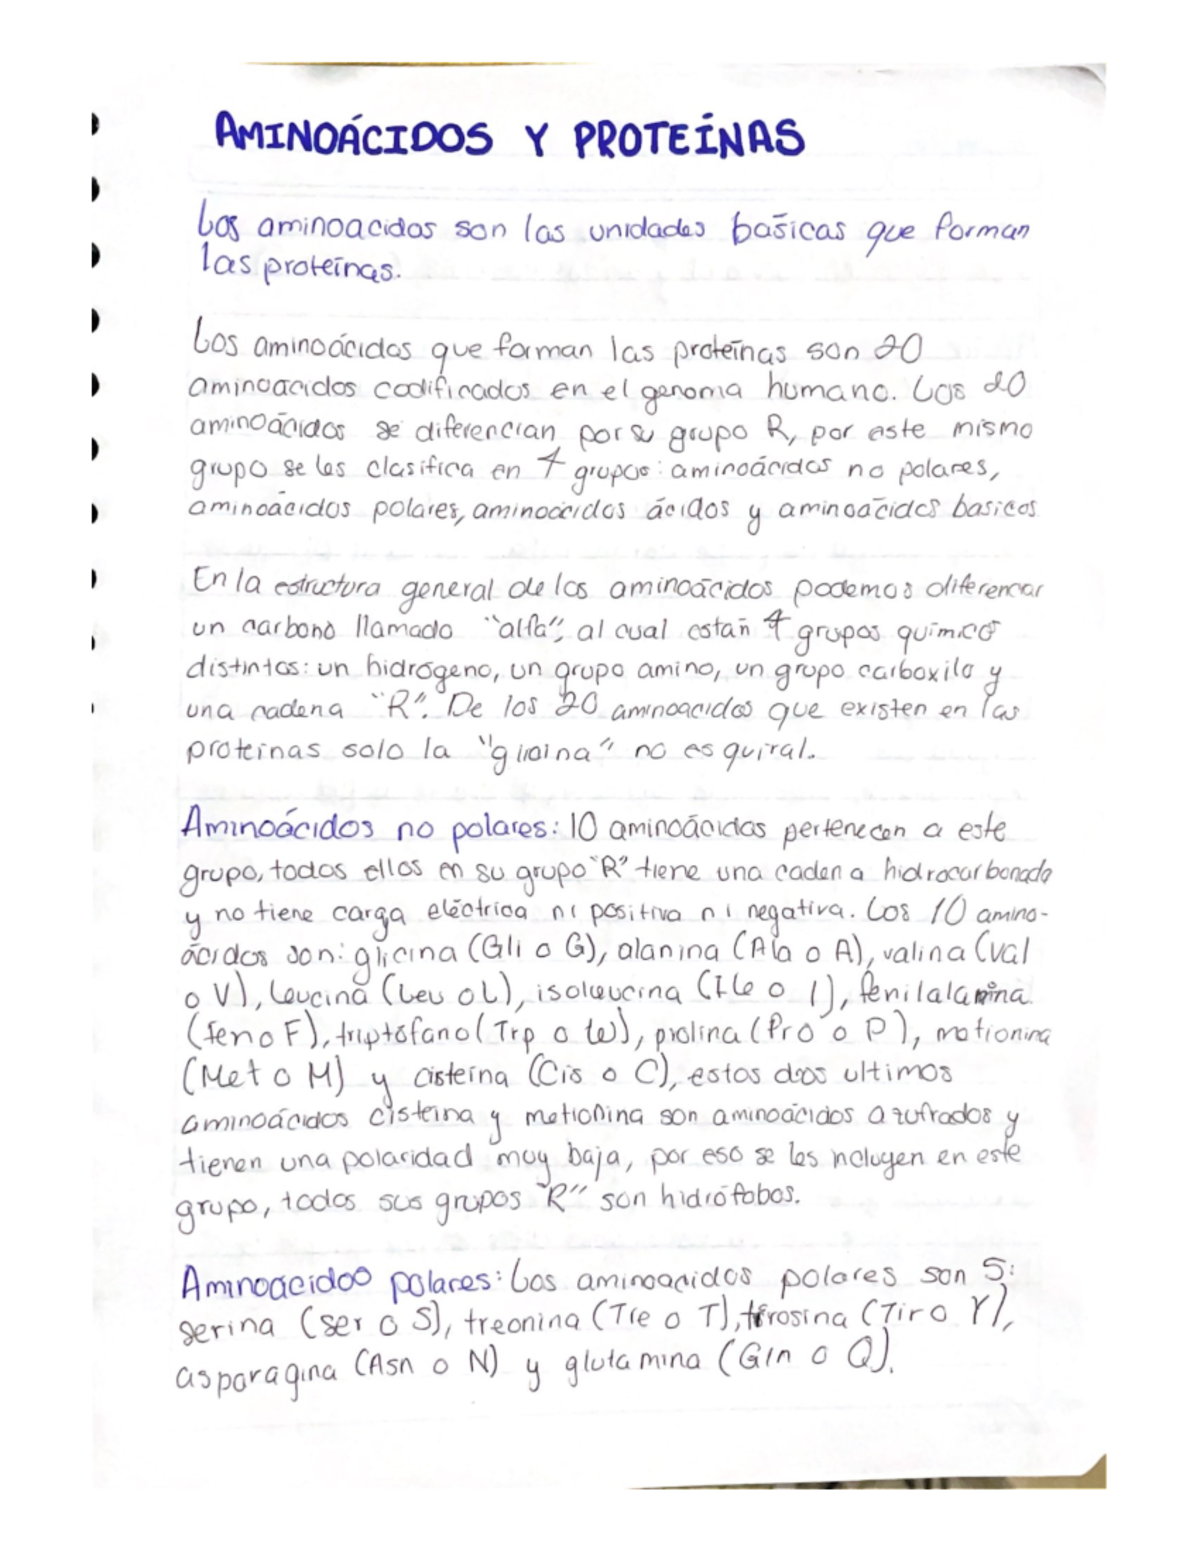 AMINOÁCIDOS Y PROTEÍNAS
Los aminoacidos son las unidades básicas que forman
las proteínas.
Los aminoácidos que forman las proteínas son 20
aminoacidos codificados en el genoma humano. Los 20
aminoácidos se diferencian por su grupo R, por este mismo
grupo se les clasifica en 4 grupos: aminoácidos no polares,
aminoácidos polares, aminoacidos ácidos y aminoácidos basicos
En la estructura general de los aminoácidos podemos diferenciar
un carbono llamado "alfa", al cual están 4 grupos químico
distintos: un hidrógeno, un grupo amino, un grupo carboxilo y
una cadena "R". De los 20 aminoacidos que existen en las
proteinas solo la "glicina" no es quiral.
Aminoácidos no polares: 10 aminoácidos pertenecen a este
grupo, todos ellos en su grupo "R" tiene una cadena hidrocarbonada
y no tiene carga eléctrica ni positiva ni negativa. Los 10 amino-
ácidos son: glicina (Gli o G), alanina (Ala o A), valina (Val
o V), leucina (Leu o L), isoleucina (Ile o I), fenilalanina
(fen o F), triptófano (Trp o W), prolina (Pro o P), metionina
(Met o M) y cisteína (Cis o C), estos dos ultimos
aminoácidos cisteína y metionina son aminoácidos azufrados y
tienen una polaridad muy baja, por eso se les incluyen en este
grupo, todos sus grupos "R" son hidrófobos.
Aminoácidos polares: Los aminoacidos polares son 5:
serina (ser o S), treonina (Tre o T), tirosina (Tir o Y),
asparagina (Asn o N) y glutamina (Gln o Q).